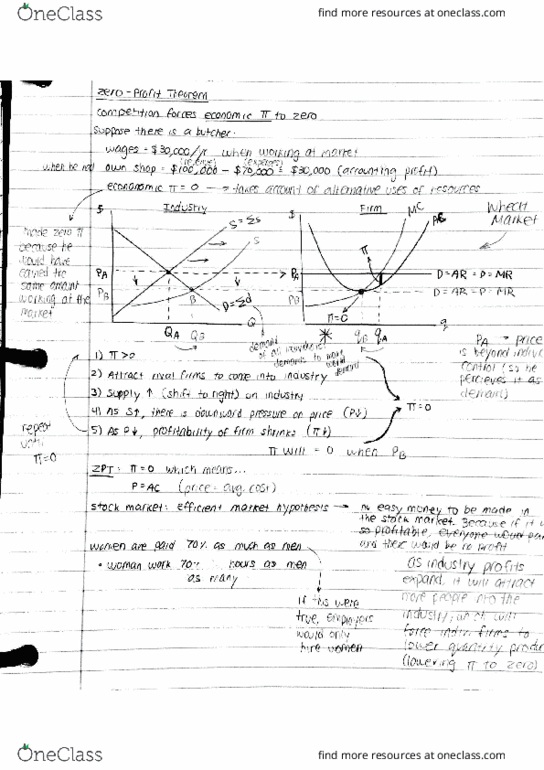 OneClass
find more resources at oneclass.com
Zero-Profit Theorem
competition forces economic π to zero
Suppose there is a butcher:
wages = $30,000/yr when working at market
(revenue) (expenses)
when he not own shop = $100,000 - $70,000 = $30,000 (accounting profit)
economic π = 0 → takes account of alternative uses of resources
$ Industry
S = Σs
S
PA
PB
B
D = Σd
QA QB Q
made zero π
because he
could have
earned the
same amount
working at the
market
$ Firm
MC
AC
Wheat
Market
π
PA
PB
D = AR = P = MR
D = AR = P = MR
π=0
qB qA q
demand
of all
demands to
demand
PA = price
is beyond
control (so he
percieves it as
demand)
1) π > 0
2) Attract rival firms to come into industry
3) Supply ↑ (shift to right) on industry
4) As S↑, there is downward pressure on price (P↓)
5) As P↓, profitability of firm shrinks (π↓)
π = 0
π will = 0 when PB
repeat
until
π=0
ZPT: π = 0 which means...
P = AC (price = avg. cost)
stock market: efficient market hypothesis → no easy money to be made in
the stock market. Because if it
so profitable, everyone would
and there would be no profit
women are paid 70% as much as men
• woman work 70% hours as men
as many
If this were
true, employers
would only
hire women
as industry profits
expand, it will attract
more people into the
industry, which will
force firms to
lower quantity
(lowering π to zero)
OneClass
find more resources at oneclass.com